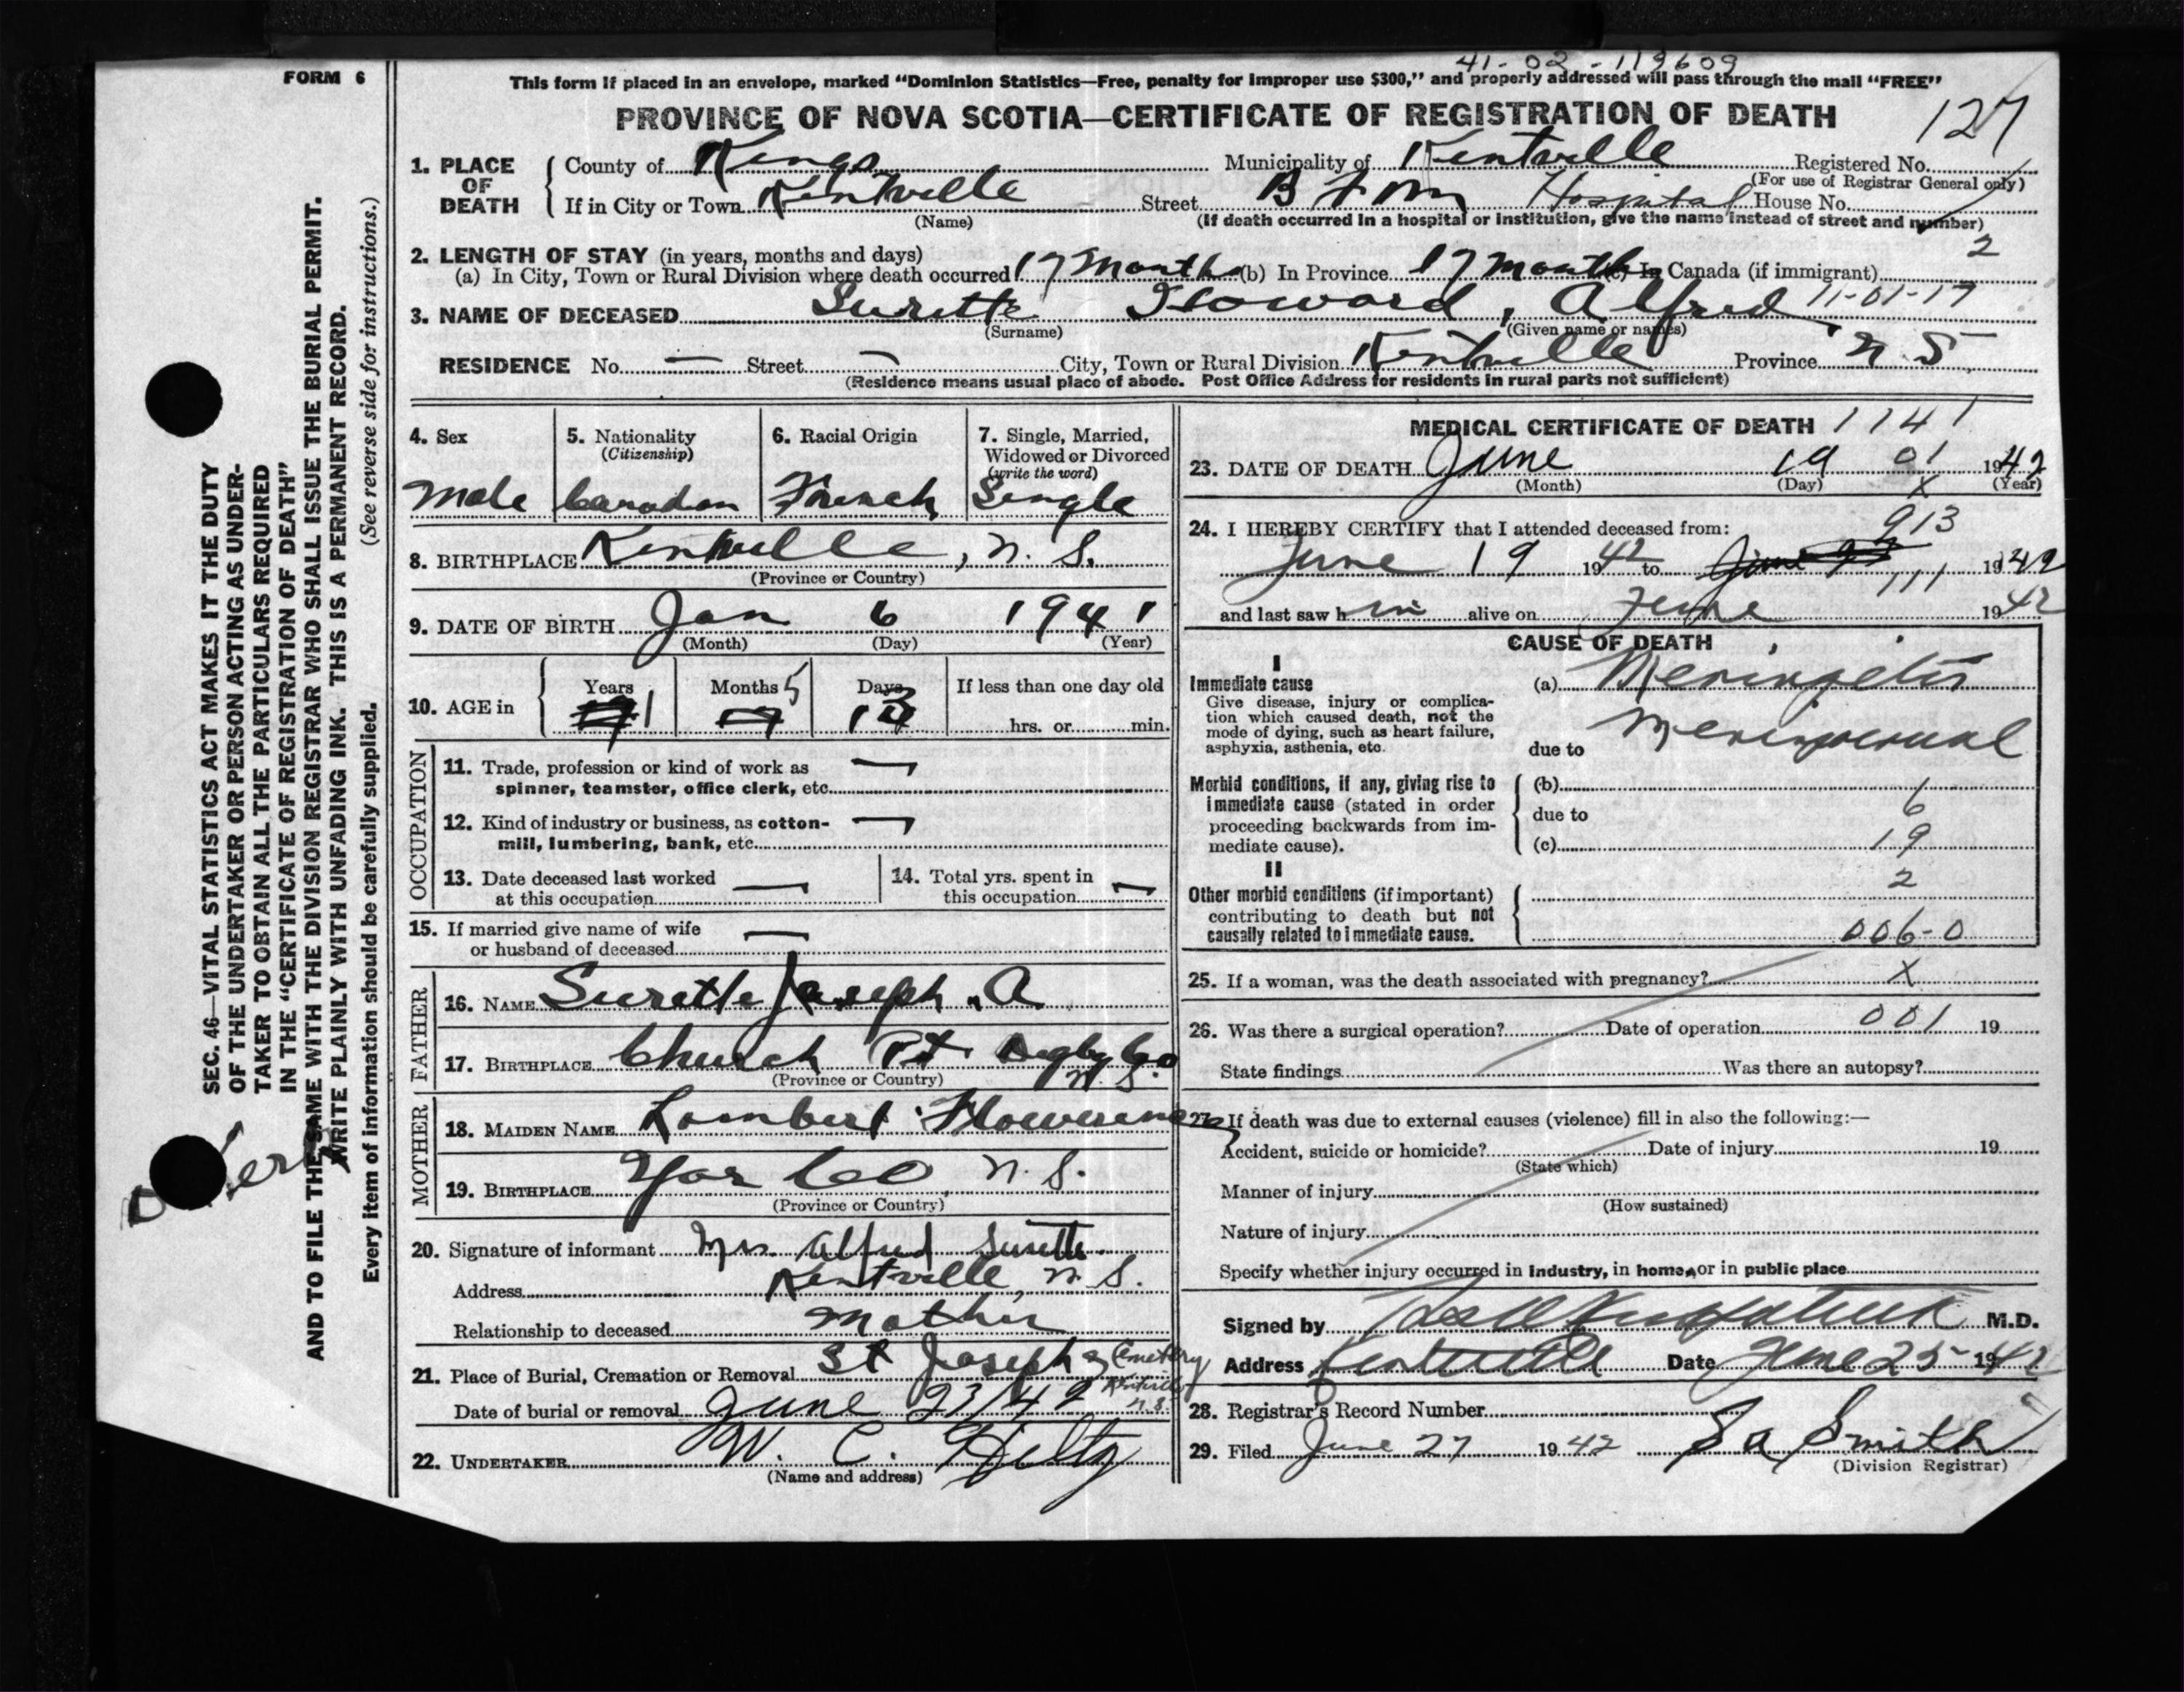 41-02-119609
FORM 6
This form if placed in an envelope, marked “Dominion Statistics—Free, penalty for improper use $300,” and properly addressed will pass through the mail “FREE”
PROVINCE OF NOVA SCOTIA—CERTIFICATE OF REGISTRATION OF DEATH
127
1. PLACE OF DEATH
County of Kings Municipality of Kentville Registered No.
(For use of Registrar General only)
If in City or Town Kentville Street B F M Hospital House No.
(Name) (If death occurred in a hospital or institution, give the name instead of street and number)
2. LENGTH OF STAY (in years, months and days) 2
(a) In City, Town or Rural Division where death occurred 17 months (b) In Province 17 months (c) In Canada (if immigrant)
3. NAME OF DECEASED Surette Howard, Alfred 11-01-17
(Surname) (Given name or names)
RESIDENCE No. — Street — City, Town or Rural Division Kentville Province N.S.
(Residence means usual place of abode. Post Office Address for residents in rural parts not sufficient)
4. Sex
Male
5. Nationality
(Citizenship)
Canadian
6. Racial Origin
French
7. Single, Married,
Widowed or Divorced
(write the word)
Single
8. BIRTHPLACE Kentville, N.S.
(Province or Country)
9. DATE OF BIRTH Jan 6 1941
(Month) (Day) (Year)
10. AGE in
Years Months Days If less than one day old
1 5 13 hrs. or min.
OCCUPATION
11. Trade, profession or kind of work as —
spinner, teamster, office clerk, etc.
12. Kind of industry or business, as cotton- —
mill, lumbering, bank, etc.
13. Date deceased last worked —
at this occupation
14. Total yrs. spent in —
this occupation
15. If married give name of wife —
or husband of deceased
FATHER
16. NAME Surette Joseph A
17. BIRTHPLACE Church Pt Digby Co N.S.
(Province or Country)
MOTHER
18. MAIDEN NAME Lombert
19. BIRTHPLACE Yar Co N.S.
(Province or Country)
20. Signature of informant Mrs. Alfred Surette
Address Kentville, N.S.
Relationship to deceased Mother
21. Place of Burial, Cremation or Removal St Josephs Cemetery
Kentville N.S.
Date of burial or removal June 23/42
22. UNDERTAKER W. C. Hiltz
(Name and address)
MEDICAL CERTIFICATE OF DEATH 1141
23. DATE OF DEATH June 19 01 1942
(Month) (Day) X (Year)
24. I HEREBY CERTIFY that I attended deceased from: 913
June 19 1942 to 1942
111
and last saw him alive on June 1942
CAUSE OF DEATH
I
Immediate cause
Give disease, injury or complica-
tion which caused death, not the
mode of dying, such as heart failure,
asphyxia, asthenia, etc.
(a) Meningitis
due to
Morbid conditions, if any, giving rise to
immediate cause (stated in order
proceeding backwards from im-
mediate cause).
(b)
due to 6
(c) 19
II
Other morbid conditions (if important)
contributing to death but not
causally related to immediate cause.
2
006-0
25. If a woman, was the death associated with pregnancy? X
26. Was there a surgical operation? Date of operation 001 19
State findings Was there an autopsy?
27. If death was due to external causes (violence) fill in also the following:—
Accident, suicide or homicide? Date of injury 19
(State which)
Manner of injury
(How sustained)
Nature of injury
Specify whether injury occurred in industry, in home, or in public place
Signed by M.D.
Address Kentville Date June 25 1942
28. Registrar's Record Number
29. Filed June 27 1942 Smith
(Division Registrar)
SEC. 46—VITAL STATISTICS ACT MAKES IT THE DUTY
OF THE UNDERTAKER OR PERSON ACTING AS UNDER-
TAKER TO OBTAIN ALL THE PARTICULARS REQUIRED
IN THE “CERTIFICATE OF REGISTRATION OF DEATH”
AND TO FILE THE SAME WITH THE DIVISION REGISTRAR WHO SHALL ISSUE THE BURIAL PERMIT.
WRITE PLAINLY WITH UNFADING INK. THIS IS A PERMANENT RECORD.
Every item of information should be carefully supplied. (See reverse side for instructions.)